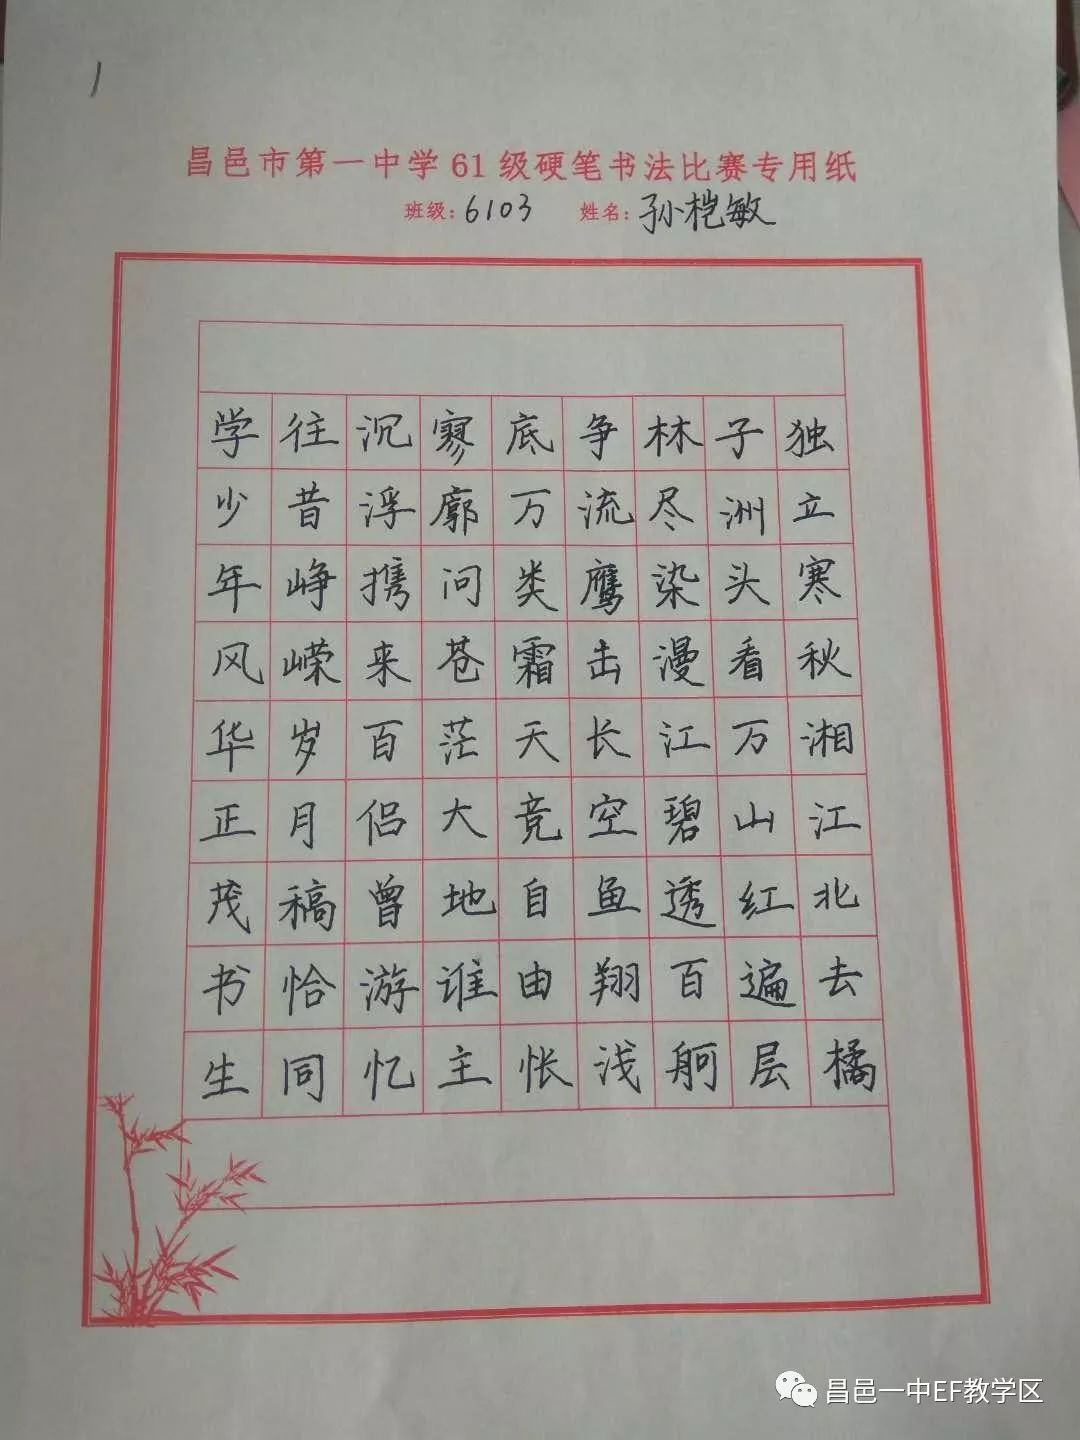 昌邑市第一中学61级硬笔书法比赛专用纸
班级：6103 姓名：孙桤敏
独立寒秋湘江北去橘
子洲头看万山红遍层
林尽染漫江碧透百舸
争流鹰击长空鱼翔浅
底万类霜天竞自由怅
寥廓问苍茫大地谁主
沉浮携来百侣曾游忆
往昔峥嵘岁月稿恰同
学少年风华正茂书生
昌邑一中EF教学区